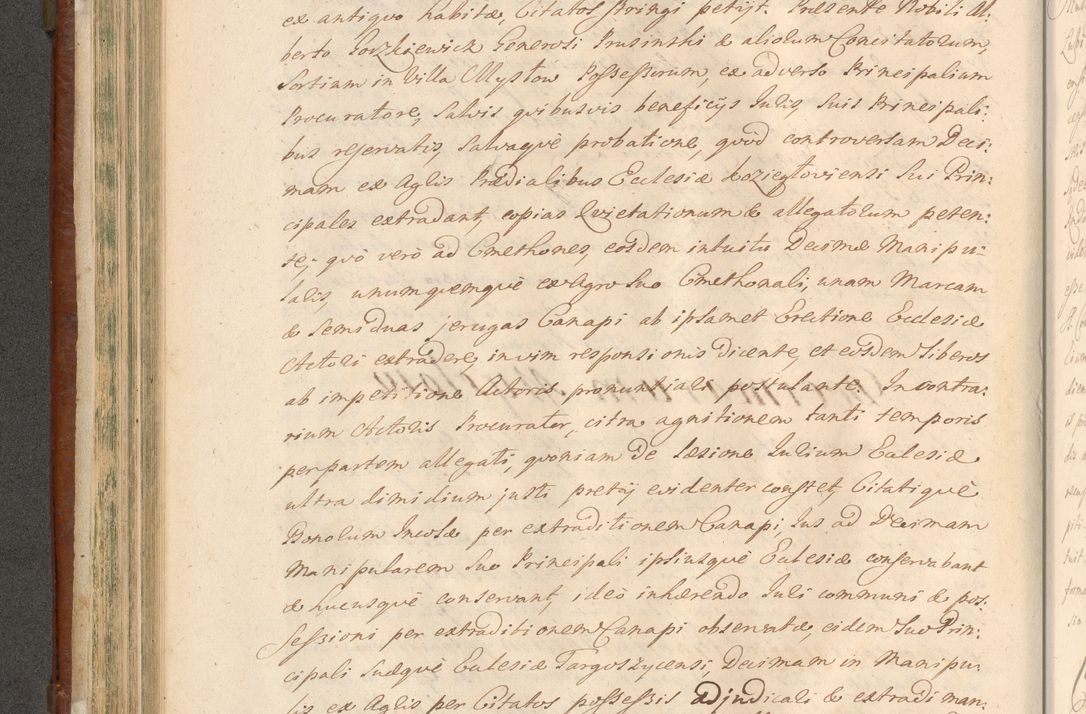 ex antiquo habitæ, Citatos stringi petijt. Præsente Nobili Al-
berto Gorzkiewick Generosi Prusinski & aliorum Concitatorum,
Sortium in Villa Mystow Possessorum, ex adverso Principalium
Procuratore, salvis qvibusvis beneficijs Iuris, suis Principali:
bus reservatis, salvaqvè probatione, qvòd controversam Deci:
mam ex Agris Prædialibus Ecclesiæ Koziegloviensi sui Prin:
cipales extradant, copias Qvietationum & allegatorum peten:
te; qvò verò ad Cmethones, eosdem intuitu Decimæ Manipu:
laris, unumqvemqvè ex Agro suo Cmethonali, unam Marcam
& semi duas jerugas Canapi ab ipsamet Erectione Ecclesiæ
Actori extradere, in vim responsionis dicente, et eosdem liberos
ab impetitione Actoris pronuntiari postulante. In contra:
rium Actoris Procurator, citra agnitionem tanti temporis
per partem allegati, qvoniam de læsione Iurium Ecclesiæ
ultra dimidium justi pretij evidenter constet, Citatiqvè
Bonorum Incolæ per extraditionem Canapi, Ius ad Decimam
Manipularem suo Principali ipsiusqvè Ecclesiæ conservabant
& hucusqvè conservant, ideò inhærendo Iuri communi & pos:
sessioni per extraditionem Canapi observatæ, eidem suo Prin:
cipali suæqvè Ecclesiæ Targoszycensi, Decimam in Manipu:
lis ex Agris per Citatos possessis adjudicari & extradi man: